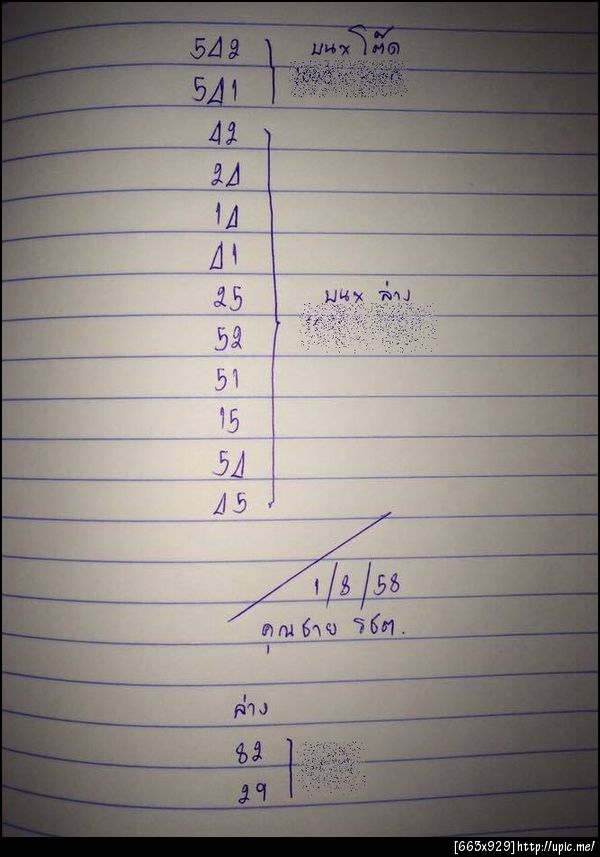 542 บนx โต๊ด
541
42
24
14
41
25 บนx ล่าง
52
51
15
54
45
1/8/58
คุณชาย รชต.
ล่าง
82
29
[663x929]http://upic.me/